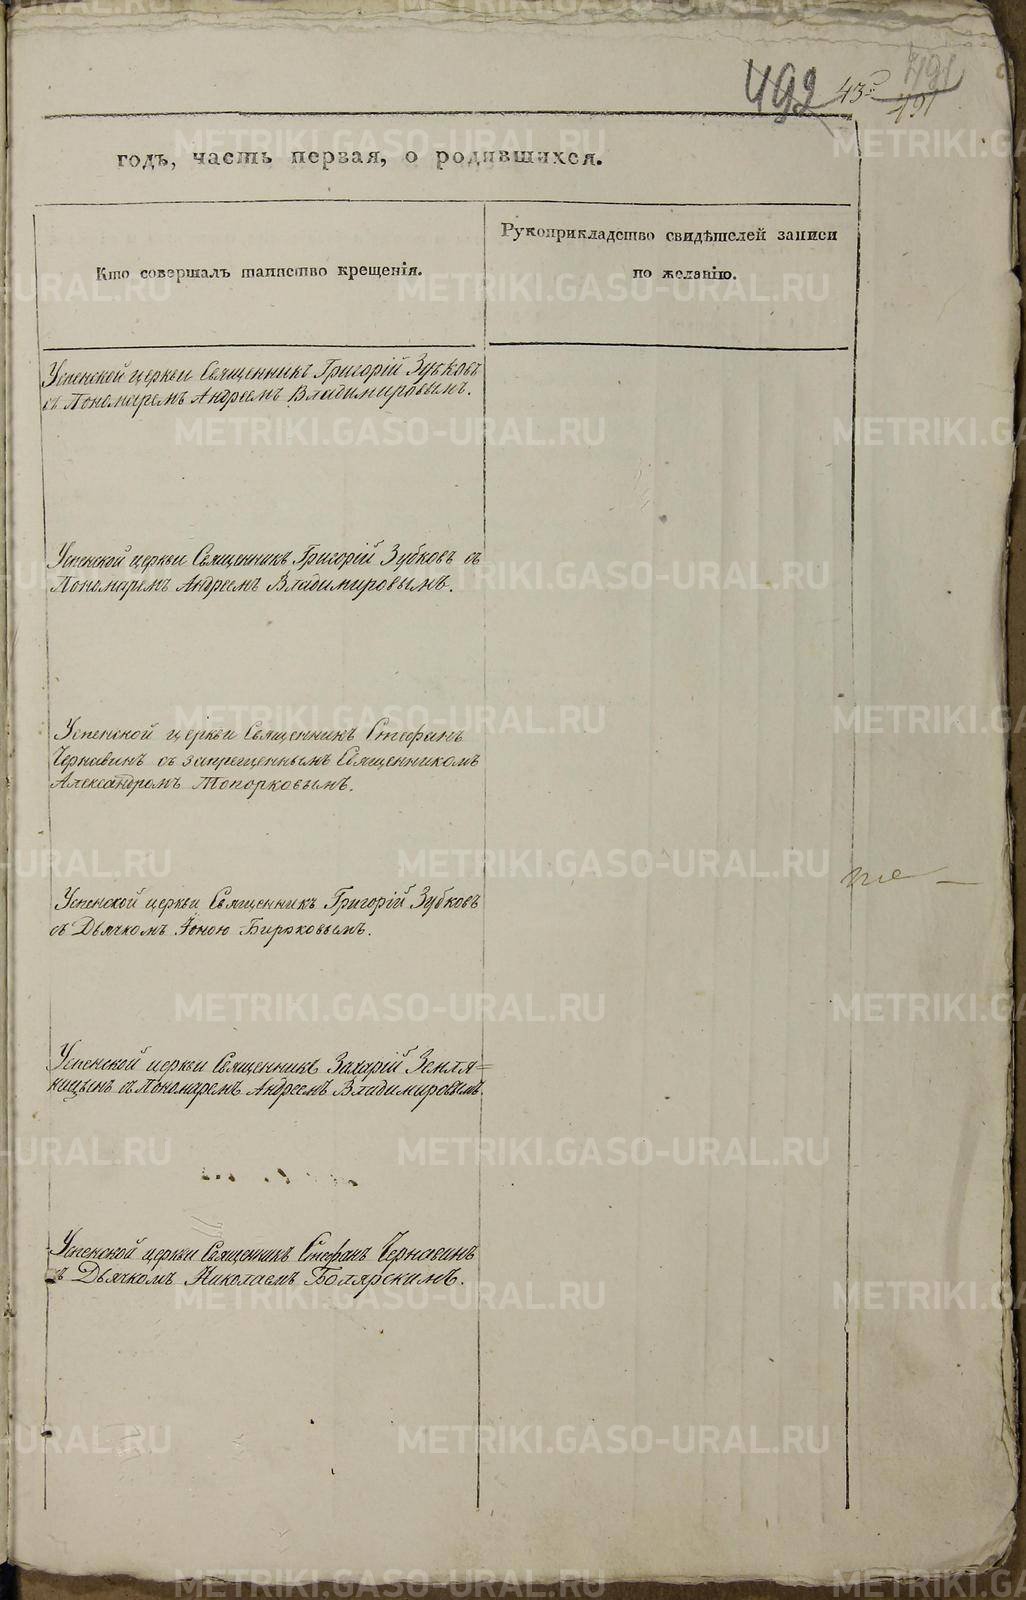 492 43 491
491
годъ, часть первая, о родившихся.
Кто совершалъ таинство крещенія.
Рукоприкладство свидѣтелей записи
по желанію.
Успенской церкви Священникъ Григорій Зубковъ
съ Пономаремъ Андреемъ Владимировымъ.
Успенской церкви Священникъ Григорій Зубковъ съ
Пономаремъ Андреемъ Владимировымъ.
Успенской церкви Священникъ Стефанъ
Чернавинъ съ запрещеннымъ Священникомъ
Александромъ Топорковымъ.
Успенской церкви Священникъ Григорій Зубковъ
съ Дьячкомъ Іоною Бирюковымъ.
Успенской церкви Священникъ Захарій Земля=
ницынъ съ Пономаремъ Андреемъ Владимировымъ.
Успенской церкви Священникъ Стефанъ Чернавинъ
съ Дьячкомъ Николаемъ Боярскимъ.
METRIKI.GASO-URAL.RU